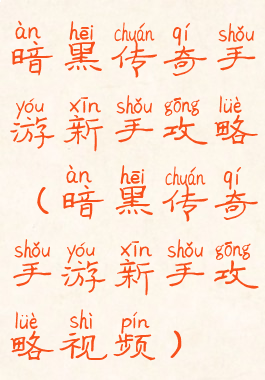 àn hēi chuán qí shǒu
暗黑传奇手
yóu xīn shǒu gōng lüè
游新手攻略
àn hēi chuán qí
（暗黑传奇
shǒu yóu xīn shǒu gōng
手游新手攻
lüè shì pín
略视频）